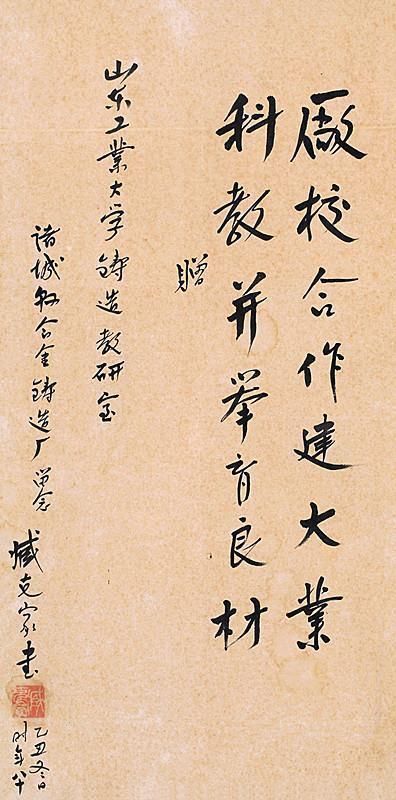 厰校合作建大業
科教并举育良材
贈
山东工業大学鋳造教研室
诸城 合金鋳造厂 留念
臧克家书
乙丑冬日
时年八十